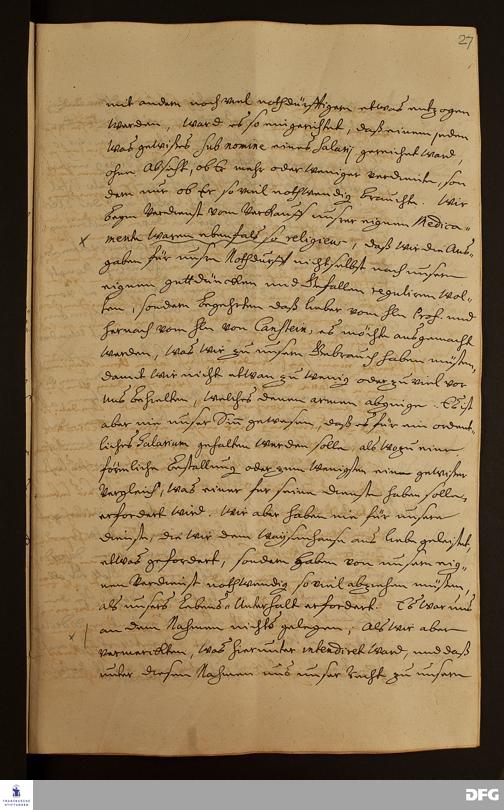 27
mit andern noch viel nothdürfftigern etwas entzogen
werden, ward es so eingerichtet, daß einem jeden
was gewißes sub nomine eines Salarij gereichet ward,
ohne Absicht, ob Er mehr oder weniger verdienete, son
dern nur ob Er so viel nothwendig brauchte. Wir
beym Verdienst vom Verkauff unsrer eignen Medica-
mente waren ebenfals so religieus, daß wir die Aus-
gaben für unsre Nothdurfft nicht selbst nach unserm
eignen gutdüncken und Gefallen reguliren wol-
ten, sondern begehrten daß lieber vom Hn Prof. und
hernach vom Hn von Canstein, es möchte ausgemacht
werden, was wir zu unserm Gebrauch haben müsten,
damit wir nicht etwan zu wenig oder zu viel vor
uns behielten, welches denen armen abginge. Es ist
aber nie unser Sinn gewesen, daß es für ein ordent-
liches Salarium gehalten werden solle, als wozu eine
förmliche Bestallung oder zum wenigsten einen gewissen
Vergleich, was einer für seine Dienste haben solle,
erfordert wird. Wir aber haben nie für unsere
Dienste, die wir dem Waysenhause aus liebe geleistet,
etwas gefordert, sondern haben von unserm eig-
nen Verdienst nothwendig so viel abziehen müssen,
als unsers Lebens-Unterhalt erfordert. Es war uns
an dem Nahmen nichts gelegen, Als wir aber
vermerckten, was hierunter intendiret ward, und daß
unter diesem Nahmen uns unser Recht zu unserm
FRANCKESCHE
STIFTUNGEN
DFG